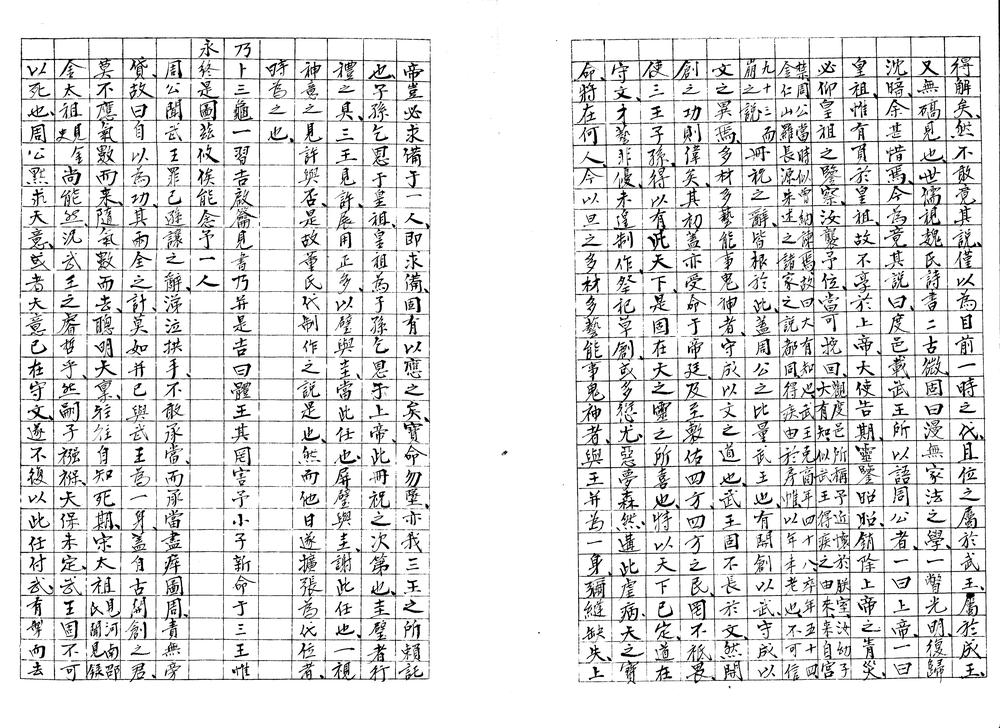 得解矣然不敢竟其説僅以為目前一時之代且位之屬於武王屬於成王
又無礄見也世儒視魏氏詩書二古微固曰漫無家法之學一瞥光明復歸
沈暗余甚惜焉今為竟其説曰度邑載武王所以語周公者一曰上帝一曰
皇祖惟有買於皇祖故不享於上帝大使告期靈鑒昭昭銷除上帝之眚災
必仰皇祖之鑒察汝襲予位當可挽回
文之異焉多材多藝能事鬼神者守成以文之道也武王固不長於文然開
創之功則偉矣其初蓋亦受命于帝廷及至敷佑四方四方之民罔不祇畏
使三王子孫得以有此天下是固在天之靈之所喜也特以天下已定道在
守文才藝非優未遑制作祭祀草創或多愆尤惡夢森然遘此虐病天之寶
命將在何人今以旦之多材多藝能事鬼神者與王并為一身彌縫缺失上
帝豈必求備于一人即求備固有以應之矣寶命勿墜亦我三王之所賴託
也子孫乞恩于皇祖皇祖為子孫乞恩于上帝此冊祝之次第也圭璧者行
禮之具三王見許展用正多以璧與圭當此任也屏璧與圭謝此任也一視
神意之見許與否是故董氏代制作之説是也然而他日遂擴張為代位者
時為之也
乃卜三龜一習吉啟籥見書乃并是吉曰體王其罔害予小子新命于三王惟
永終是圖茲攸俟能念予一人
周公聞武王罪己遜讓之辭涕泣拱手不敢承當而承當盡瘁圖周責無旁
貸故曰自以為功其兩全之計莫如并己與武王為一身蓋自古開創之君
莫不應氣數而來隨氣數而去聰明天稟往往自知死期宋太祖見河南邵氏聞見錄
金太祖見金史尚能然況武王之睿哲乎然嗣子襁褓大保未定武王固不可
以死也周公默求天意或者天意已在守文遂不復以此任付武有為而去